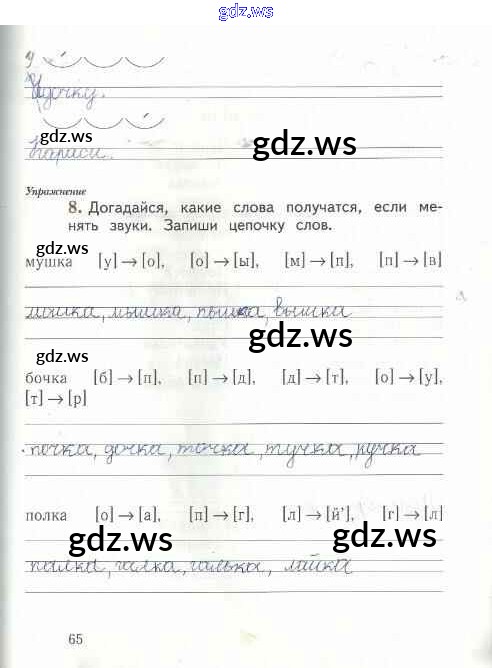 gdz.ws
у
Удочку.
gdz.ws
gdz.ws
Караси.
Упражнение
8. Догадайся, какие слова получатся, если ме-
нять звуки. Запиши цепочку слов.
gdz.ws
мушка [у] → [о], [о] → [ы], [м] → [п], [п] → [в]
мошка, мышка, пышка, вышка
gdz.ws
gdz.ws
бочка [б] → [п], [п] → [д], [д] → [т], [о] → [у],
[т] → [р]
почка, дочка, точка, тучка, ручка
полка [о] → [а], [п] → [г], [л] → [й’], [г] → [л]
gdz.ws
gdz.ws
палка, галка, галька, лайка
65
gdz.ws